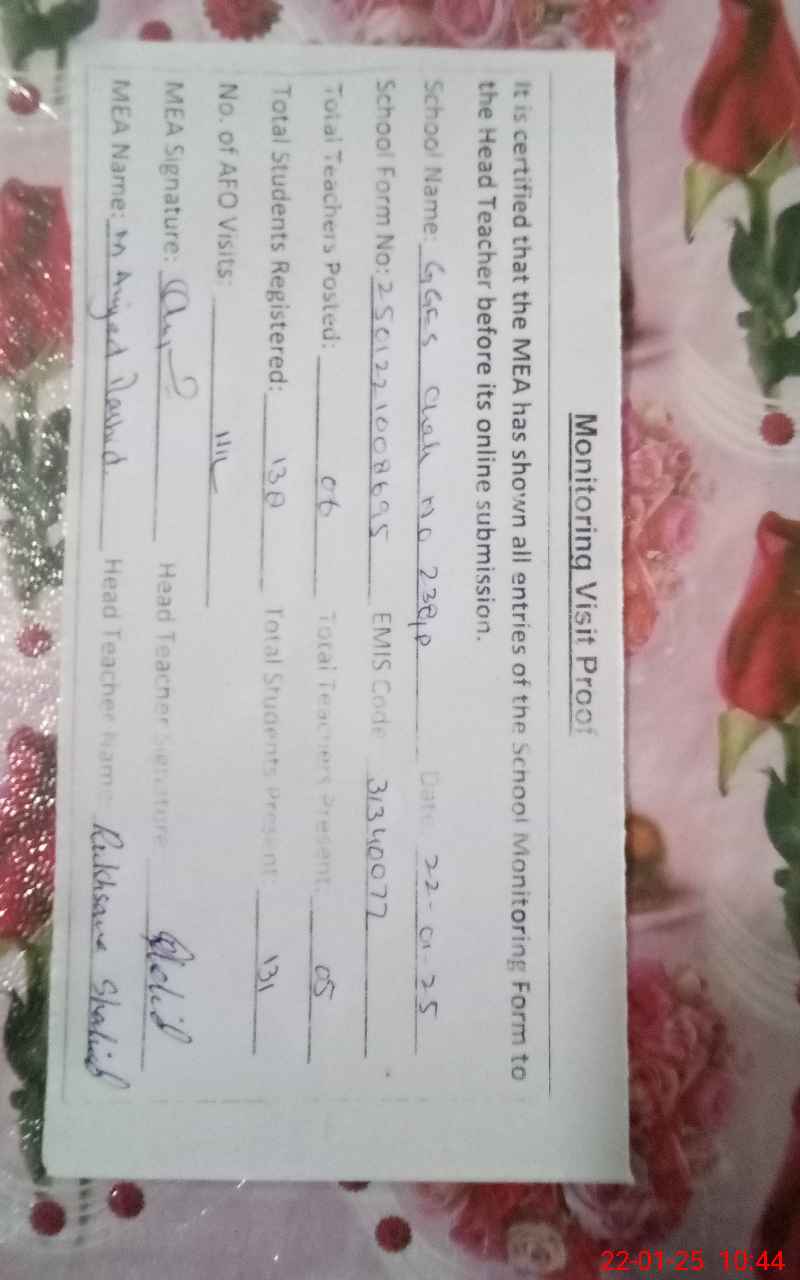 Monitoring Visit Proof
It is certified that the MEA has shown all entries of the School Monitoring Form to
the Head Teacher before its online submission.
School Name: GGES Chak No 238/P Date: 22-01-25
School Form No: 2501221008695 EMIS Code 31340077
Total Teachers Posted: 06 Total Teachers Present: 05
Total Students Registered: 138 Total Students Present: 131
No. of AFO Visits: Nil
MEA Signature: Head Teacher Signature
MEA Name: M Amjad Rashid. Head Teacher Name Rukhsana Shahid
22-01-25 10:44